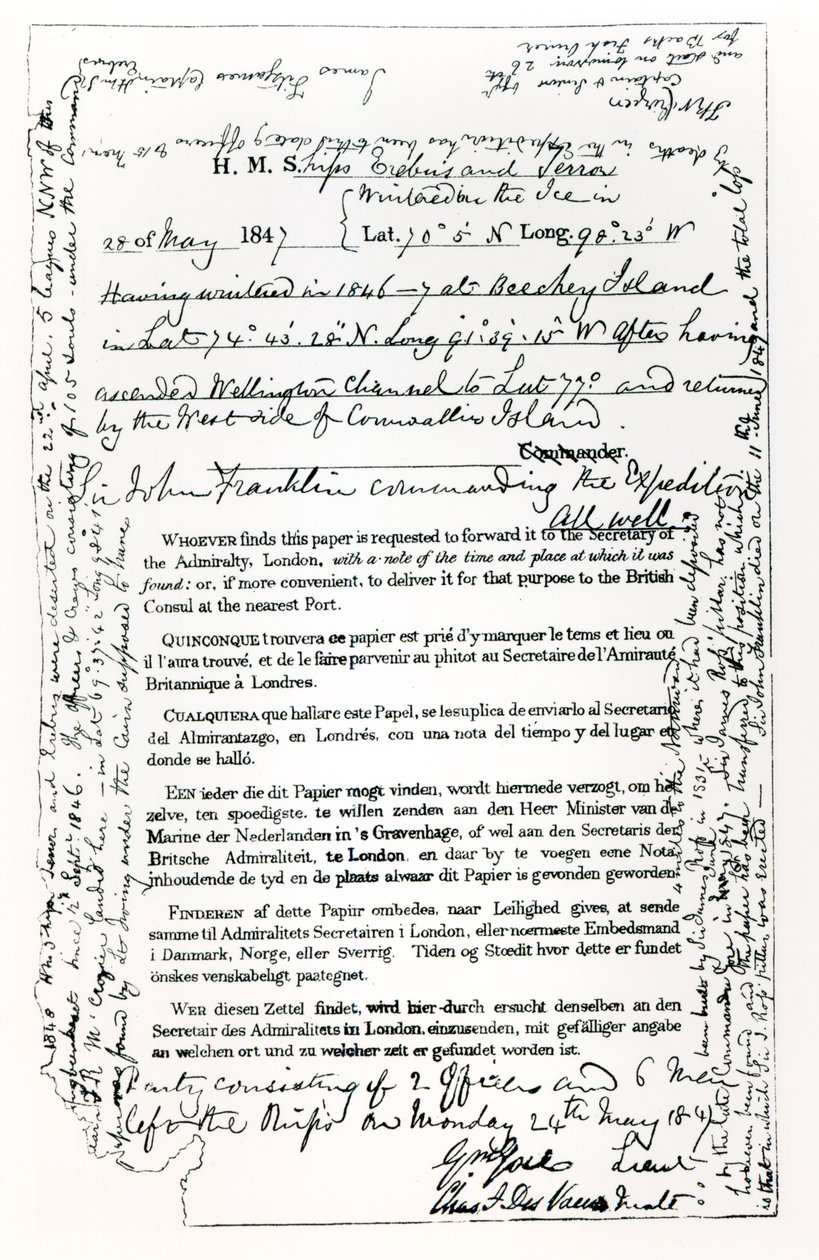 H. M. Ships Erebus and Terror
Wintered in the Ice in
28 of May 1847 Lat. 70° 5' N Long. 98°. 23' W
Having wintered in 1846–7 at Beechey Island
in Lat 74°. 43'. 28" N. Long 91°. 39'. 15" W After having
ascended Wellington Channel to Lat 77° and returned
by the West side of Cornwallis Island.
Commander.
Sir John Franklin commanding the Expedition
All well
WHOEVER finds this paper is requested to forward it to the Secretary of
the Admiralty, London, with a note of the time and place at which it was
found: or, if more convenient, to deliver it for that purpose to the British
Consul at the nearest Port.
QUINCONQUE trouvera ce papier est prié d'y marquer le tems et lieu ou
il l'aura trouvé, et de le faire parvenir au phitot au Secretaire de l'Amirauté
Britannique à Londres.
CUALQUIERA que hallare este Papel, se le suplica de enviarlo al Secretario
del Almirantazgo, en Londrés, con una nota del tiempo y del lugar en
donde se halló.
EEN ieder die dit Papier mogt vinden, wordt hiermede verzogt, om het
zelve, ten spoedigste, te willen zenden aan den Heer Minister van de
Marine der Nederlanden in 's Gravenhage, of wel aan den Secretaris der
Britsche Admiraliteit, te London, en daar by te voegen eene Nota,
inhoudende de tyd en de plaats alwaar dit Papier is gevonden geworden
FINDEREN af dette Papiir ombedes, naar Leilighed gives, at sende
samme til Admiralitets Secretairen i London, eller nœrmeste Embedsmand
i Danmark, Norge, eller Sverrig. Tiden og Stœdit hvor dette er fundet
önskes venskabeligt paategnet.
WER diesen Zettel findet, wird hier-durch ersucht denselben an den
Secretair des Admiralitets in London, einzusenden, mit gefälliger angabe
an welchen ort und zu welcher zeit er gefundet worden ist.
Party consisting of 2 Officers and 6 Men
left the Ships on Monday 24th May 1847
Gm Gore Lieut
Chas. F. Des Vaeux Mate
1848 H M Ships Terror and Erebus were deserted on the 22nd April. 5 leagues NNW of this
having been beset since 12th Septr 1846. The officers & Crews consisting of 105 souls - under the Command
tain F. R. M. Crozier landed here – in Lat. 69°. 37'. 42" Long 98° 41'
paper was found by Lt Irving under the Cairn supposed to have
been built by Sir James Ross in 1831 – where it had been deposited
4 miles to the Northward
by the late Commander Gore in May June 1847. Sir James Ross' pillar has not
however been found and the paper has been transferred to this position which
is that in which Sir J. Ross' pillar was erected — Sir John Franklin died on the 11th June 1847 and the total loss
by deaths in the Expedition has been to this date 9 officers & 15 men.
James Fitzjames Captain H M S
Erebus
F R M Crozier
Captain & Senior Offr
and start on tomorrow 26th
for Backs Fish River